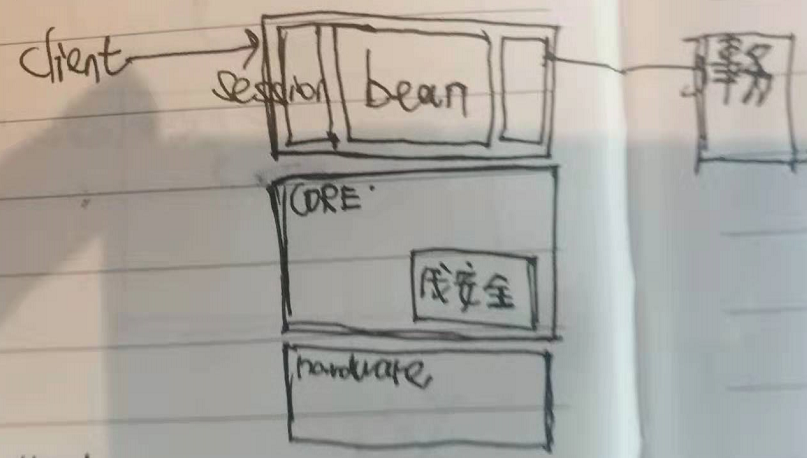 client
session
bean
事务
CORE
安全
hardware